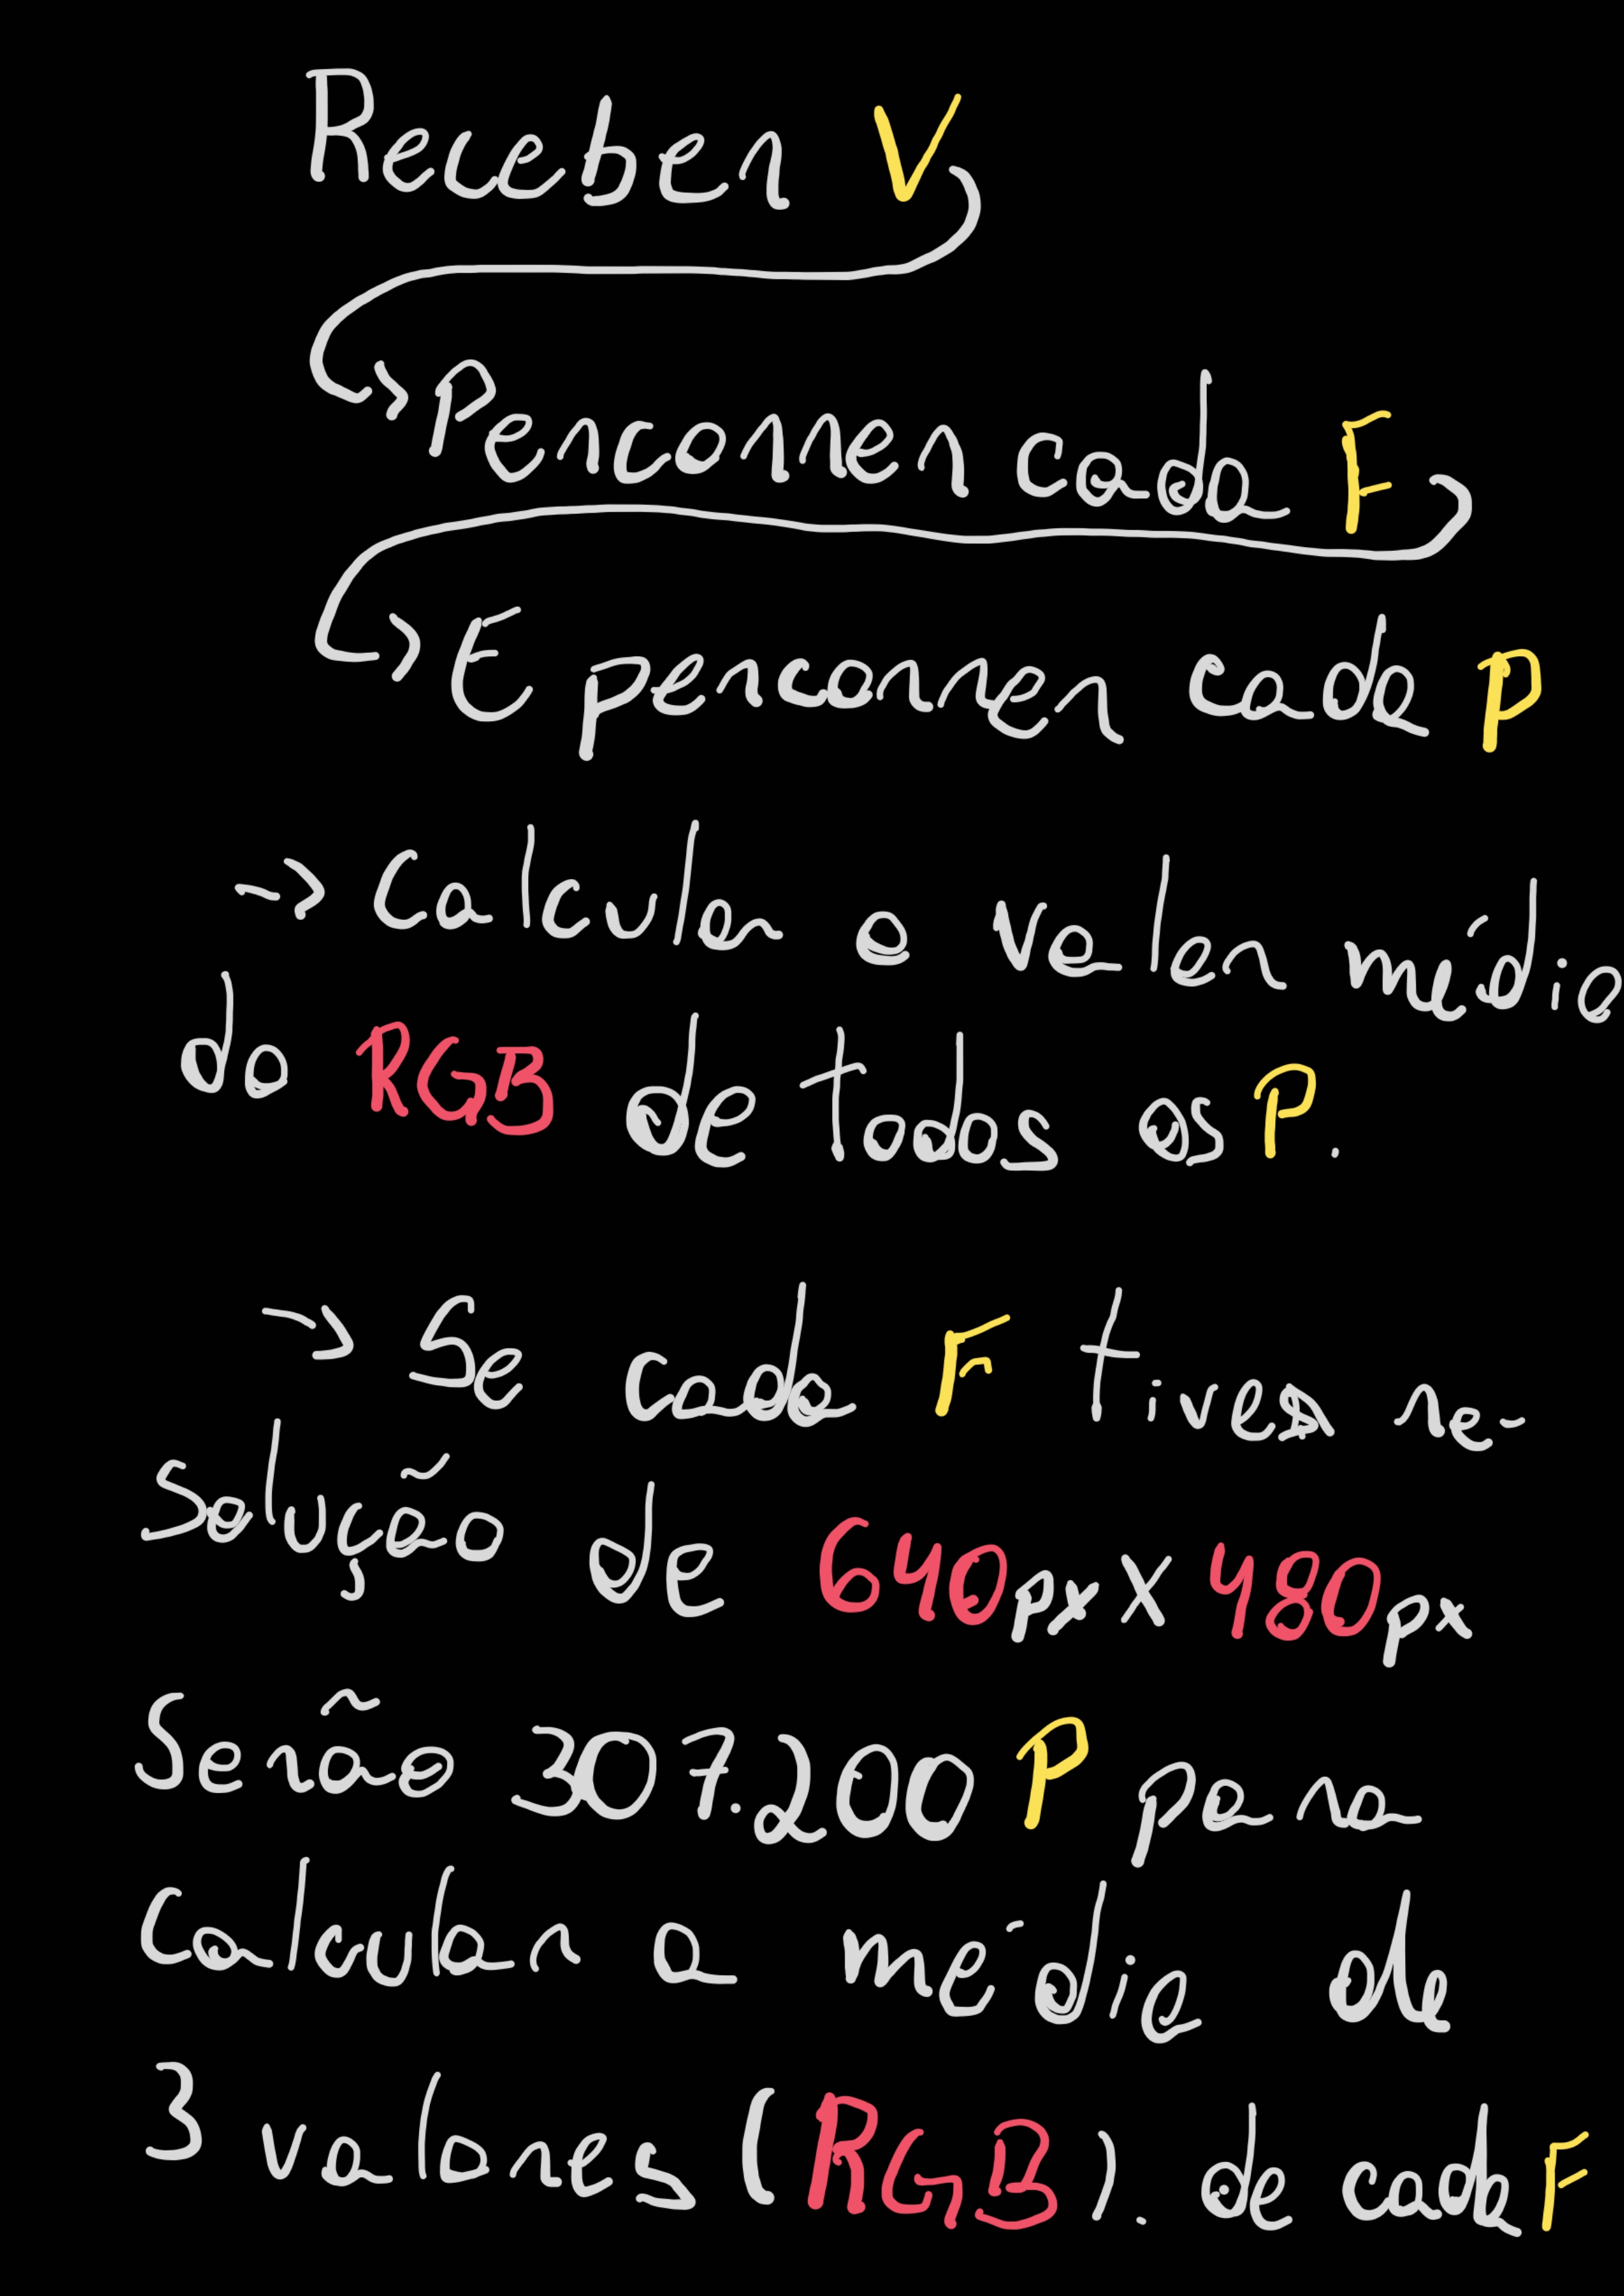 Receber V
Percorrer cada F
E percorrer cada P
-> Calcular o valor médio
do RGB de todos os P.
-> Se cada F tives re-
solução de 640px X 480px
Serão 307.200 P para
Calcular a média de
3 valores (RGB). de cada F